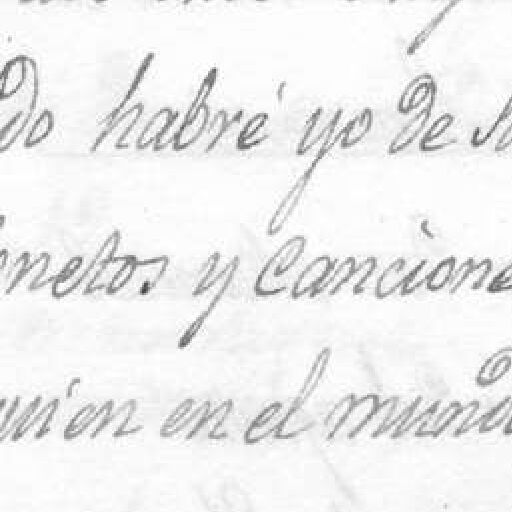 do habré yo de s
onetos y cancione
uien en el mund